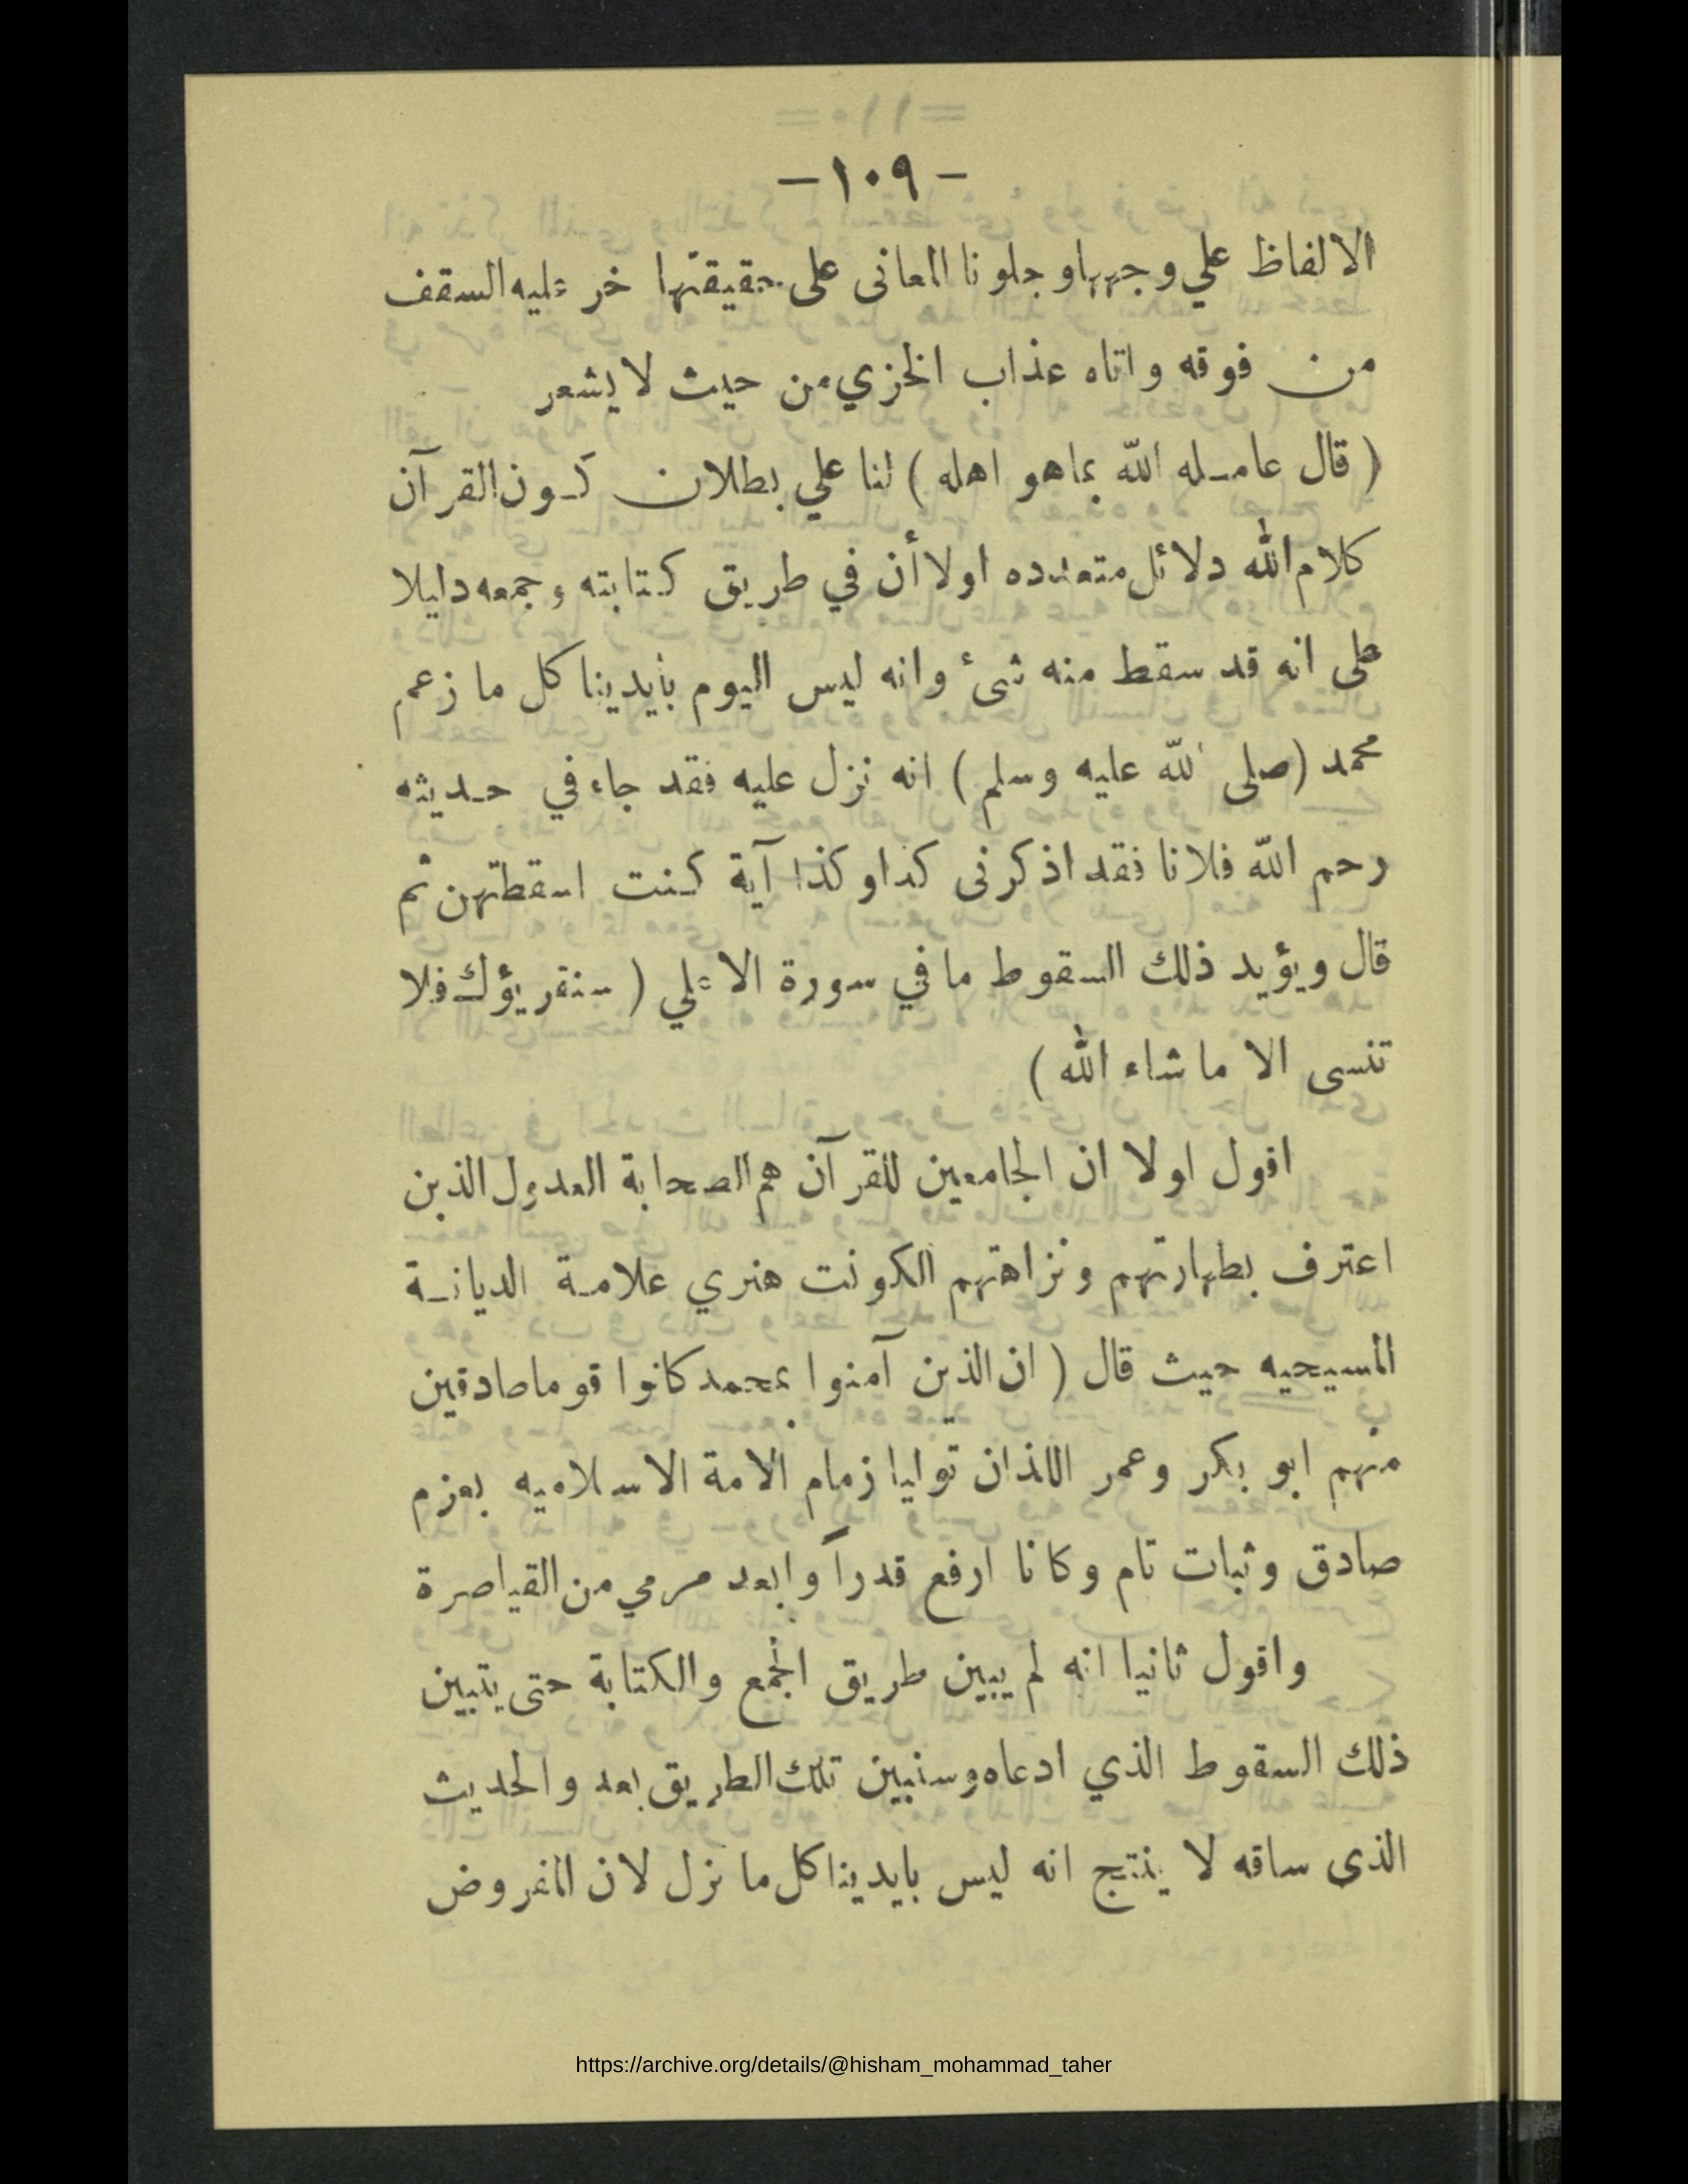 - ١٠٩ -
الالفاظ علي وجهها وجلونا المعانى على حقيقتها خر عليه السقف
من فوقه واتاه عذاب الخزي من حيث لا يشعر
( قال عامله الله بما هو اهله ) لنا علي بطلان كون القرآن
كلام الله دلائل متعدده اولا أن في طريق كتابته وجمعه دليلا
على انه قد سقط منه شىء وانه ليس اليوم بأيدينا كل ما زعم
محمد (صلى الله عليه وسلم ) انه نزل عليه فقد جاء في حديثه
رحم الله فلانا فقد اذكرنى كذا وكذا آية كنت اسقطتهن ثم
قال ويؤيد ذلك السقوط ما في سورة الاعلي ( سنقريؤك فلا
تنسى الا ما شاء الله )
اقول اولا ان الجامعين للقرآن هم الصحابة العدول الذين
اعترف بطهارتهم ونزاهتهم الكونت هنري علامة الديانة
المسيحيه حيث قال ( ان الذين آمنوا بمحمد كانوا قوما صادقين
منهم ابو بكر وعمر اللذان توليا زمام الامة الاسلاميه بعزم
صادق وثبات تام وكانا ارفع قدراً وابعد مرمي من القياصرة
واقول ثانيا انه لم يبين طريق الجمع والكتابة حتى يتبين
ذلك السقوط الذي ادعاه وسنبين تلك الطريق بعد والحديث
الذى ساقه لا ينتج انه ليس بايدينا كل ما نزل لان المفروض
https://archive.org/details/@hisham_mohammad_taher